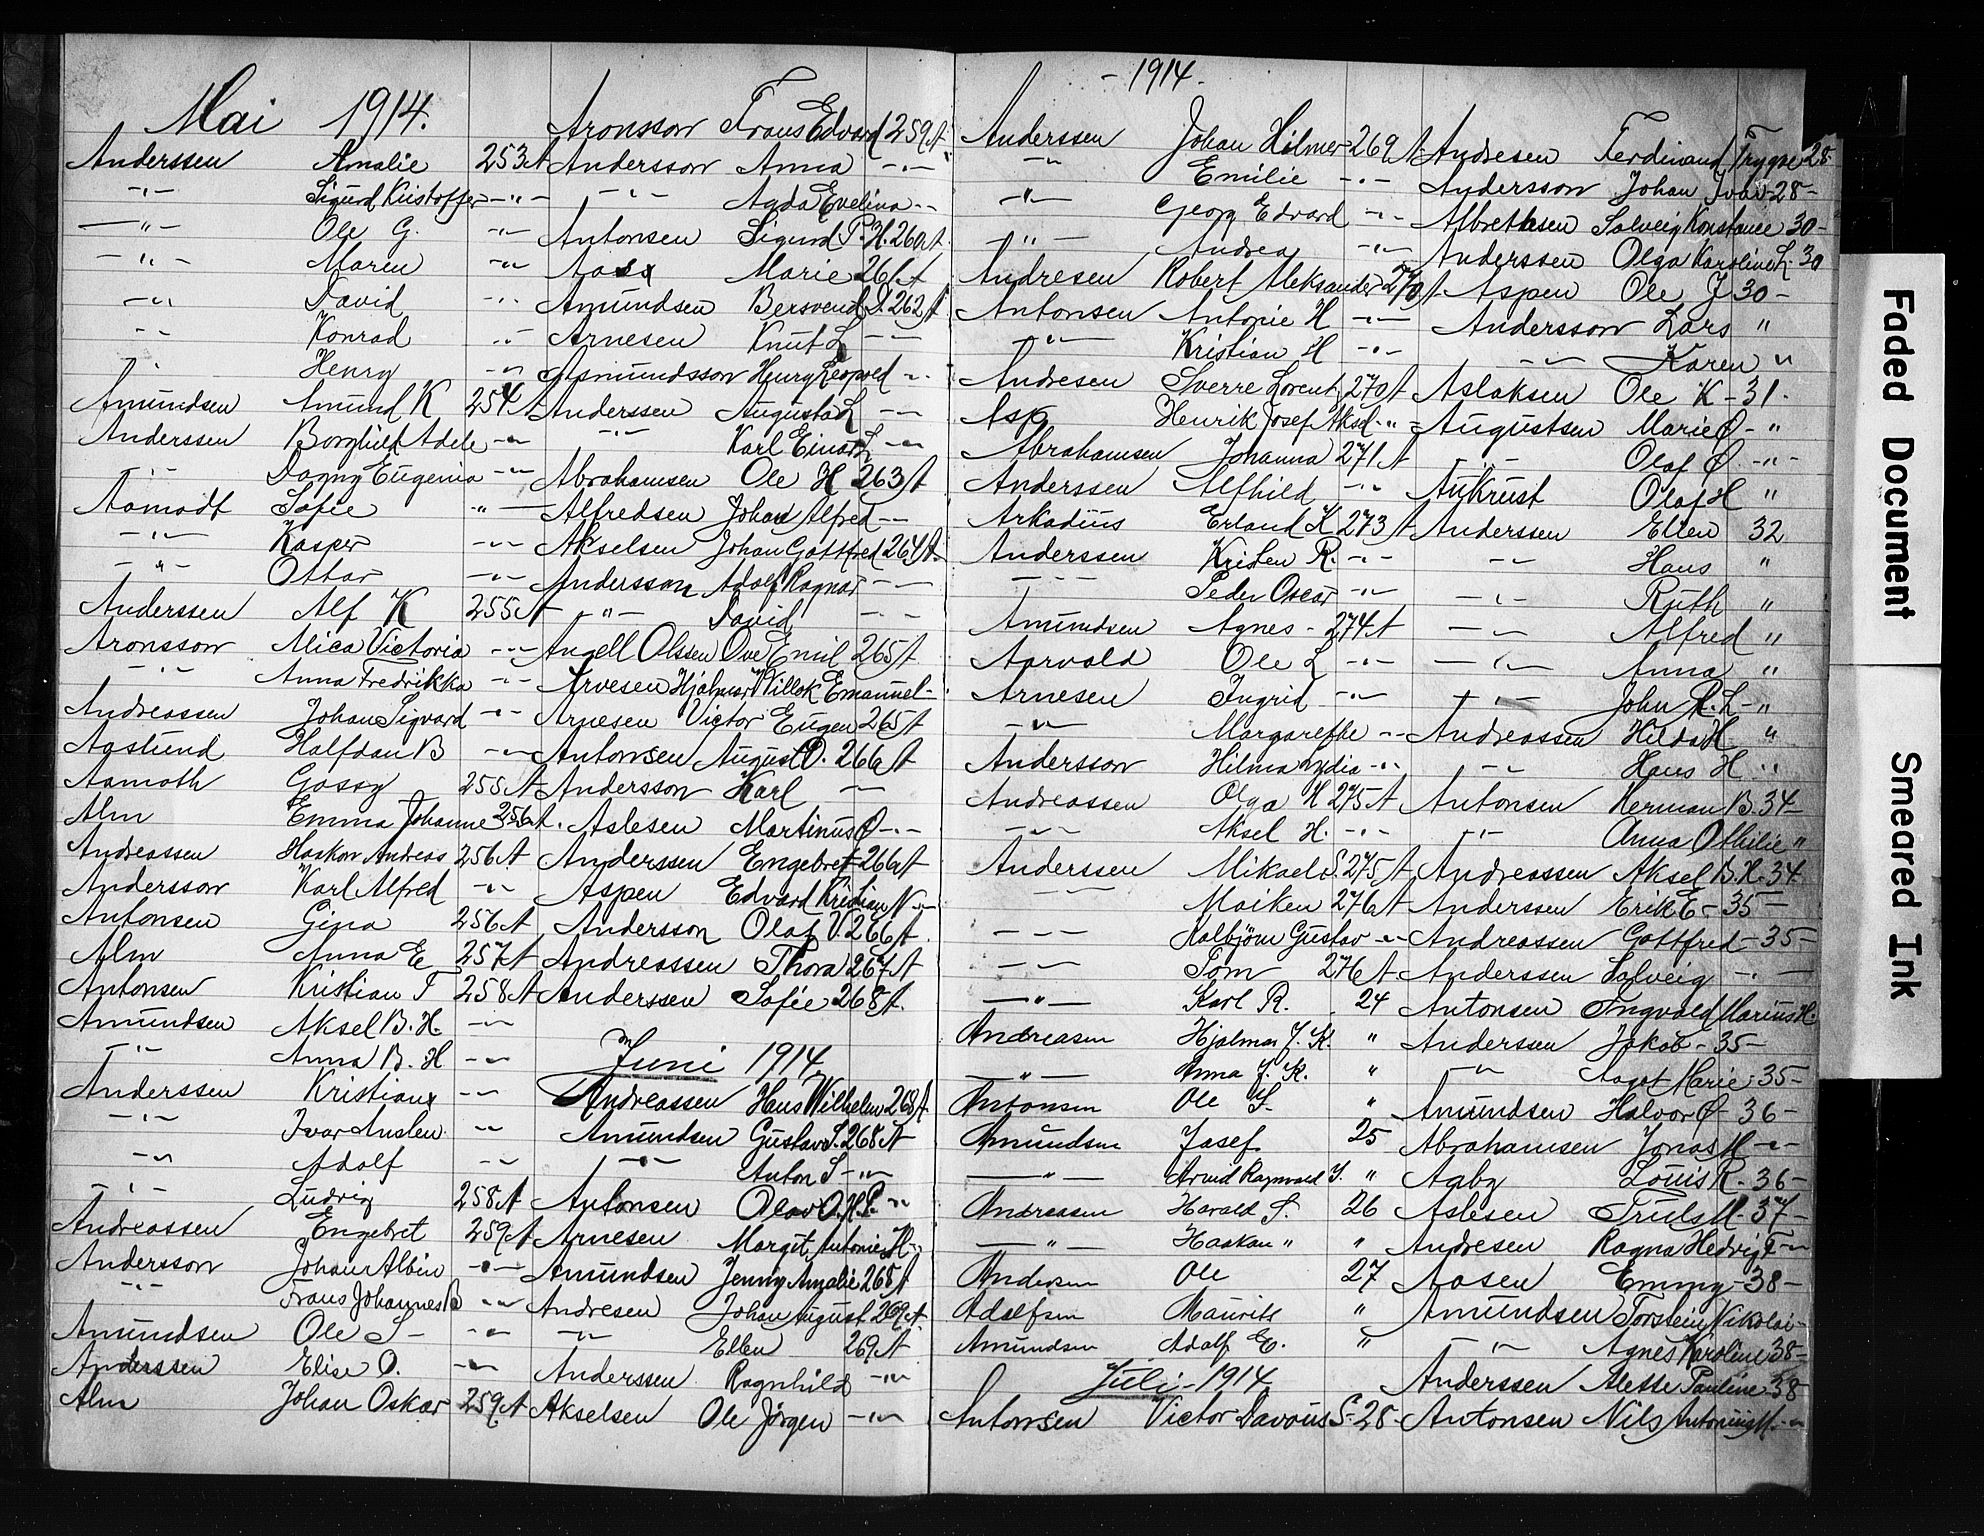 Mai 1914.
Anderssen Amalie 253 A
-"- Sigurd Kristoffer -"-
-"- Ole G. -"-
-"- Maren -"-
-"- David -"-
-"- Konrad -"-
-"- Henry -"-
Amundsen Amund K 254 A
Anderssen Borghild Adele -"-
-"- Dagny Eugenia -"-
Aamodt Sofie -"-
-"- Kasper -"-
-"- Ottar -"-
Anderssen Alf K 255 A
Aronsson Alica Victoria -"-
-"- Anna Fredrikka -"-
Andreassen Johan Sigvard -"-
Aaslund Halfdan B -"-
Aamoth Gassy 255 A
Alm Emma Johanne 256 A.
Andreassen Haakon Andreas 256 A
Andersson Karl Alfred -"-
Antonsen Gina 256 A
Alm Anna E 257 A
Antonsen Kristian F 258 A
Amundsen Aksel B. H. -"-
-"- Anna B. H -"-
Anderssen Kristian -"-
-"- Ivar Anslen -"-
-"- Adolf -"-
-"- Ludvig 258 A
Andreassen Engebret 259 A
Andersson Johan Albin -"-
-"- Frans Johannes B -"-
Amundsen Ole S- -"-
Anderssen Elise O. -"-
Alm Johan Oskar 259 A
Aronsson Frans Edvard 259 A
Andersson Anna -"-
-"- Agda Evelina -"-
Antonsen Sigurd P. H. 260 A
Aass Marie 261 A
Amundsen Bersvend D. 262 A
Arnesen Knut L -"-
Asmundsson Henry Leopold -"-
Anderssen Augusta L -"-
-"- Karl Einar L -"-
Abrahamsen Ole H 263 A
Alfredsen Johan Alfred -"-
Akselsen Johan Gottfred 264 A
Andersson Adolf Ragnar -"-
-"- David -"-
Angell Olssen Ove Emil 265 A
Arvesen Hjalmar Willok Emanuel -"-
Arnesen Victor Eugen 265 A
Antonsen August O. 266 A
Andersson Karl -"-
Aslesen Martinus O -"-
Anderssen Engebret 266 A
Aspen Edvard Kristian N -"-
Andersson Olaf V. 266 A
Andreassen Thora 267 A
Anderssen Sofie 268 A.
Juni 1914
Andreassen Hans Wilhelm 268 A
Amundsen Gustav S. 268 A
-"- Anton S -"-
Antonsen Olav O. H. P. -"-
Arnesen Margit Antonie H -"-
Amundsen Jenny Amalie 268 A
Andresen Johan August 269 A
-"- Ellen 269 A
Anderssen Ragnhild -"-
Akselsen Ole Jørgen -"-
- 1914 -
Anderssen Johan Hilmer 269 A
-"- Emilie -"-
-"- Georg Edvard -"-
-"- Andrea -"-
Andresen Robert Aleksander 270 A
Antonsen Antonie H -"-
-"- Kristian H -"-
Andresen Sverre Lorent 270 A
Asp Henrik Josef Aksel -"-
Abrahamsen Johanna 271 A
Anderssen Alfhild -"-
Arkadius Erland K 273 A
Anderssen Kristen R. -"-
-"- Peder Oscar -"-
Amundsen Agnes - 274 A
Aarvold Ole L -"-
Arnesen Ingrid -"-
-"- Margarethe -"-
Andersson Hilma Lydia -"-
Andreassen Olga H 275 A
-"- Aksel H. -"-
Anderssen Mikael S. 275 A
-"- Maiken 276 A
-"- Kolbjörn Gustav -"-
-"- Tom 276 A
-"- Karl R. 24
Andreasen Hjalmar J. K. "
-"- Anna J. K. "
Antonsen Ole S. "
Amundsen Josef 25
-"- Arvid Ragnvald J. "
Andreasen Harald S. 26
-"- Haakon " "
Andersen Ole 27
Adolfsen Maurits "
Amundsen Adolf E. "
Juli - 1914
Antonsen Victor Davous S - 28
Andresen Ferdinand Trygve 28
Andersson Johan Ivar - 28 -
Albrethsen Solveig Konstance 30 -
Anderssen Olga Karoline L. 30
Aspen Ole J 30 -
Andersson Lars "
-"- Karen "
Aslaksen Ole K - 31 -
Augustsen Marie Ø - "
-"- Olaf Ø. -"-
Aukrust Olaf H "
Anderssen Ellen 32
-"- Hans "
-"- Ruth "
-"- Alfred "
-"- Anna "
-"- John R. L - "
Andreassen Hilda H "
-"- Hans H "
Antonsen Herman B. 34 -
-"- Anna Othilie "
Andreassen Aksel B. H. 34
Anderssen Erik E - 35 -
Andreassen Gottfred - 35 -
Anderssen Solveig -"-
Antonsen Ingvald Marius H.
Anderssen Jakob - 35 -
-"- Aagot Marie - 35 -
Amundsen Halvor Ø - 36 -
Abrahamsen Jonas M -"-
Aaby Louis R. 36 -
Aslesen Truls M. 37 -
Andresen Ragna Hedvig F -"-
Aasen Emmy - 38 -
Amundsen Torstein Nikolai -
-"- Agnes Karoline 38 -
Anderssen Alette Pauline 38
Antonsen Nils Antonius M. -"-
Faded Document
Smeared Ink